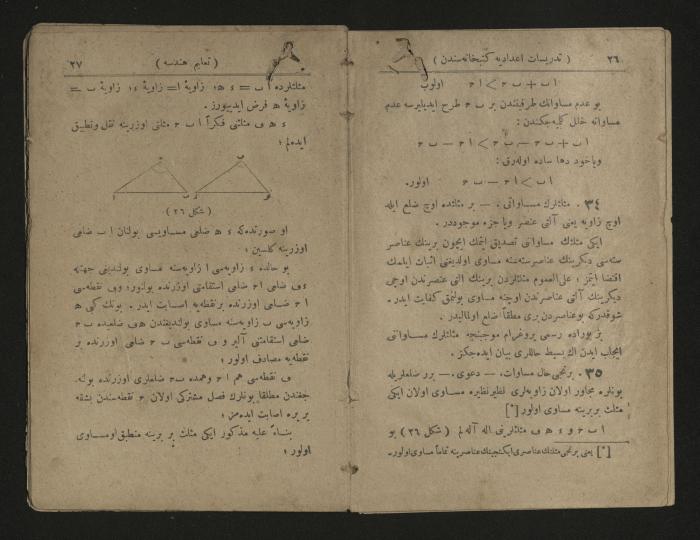 ٢٦ ( تدریسات اعدادیه کتبخانه‌سندن )
ا ب + ب ح > ا ح اولوب
بو عدم مساواتك طرفیندن بر ب ح طرح ایدیلیرسه عدم
مساواته خلل کلمیه‌جکندن :
ا ب + ب ح − ب ح > ا ح − ب ح
ویاخود دها ساده اوله‌رق :
ا ب > ا ح − ب ح اولور.
٣٤ . مثلثلرك مساواتی . — بر مثلثده اوچ ضلع ایله
اوچ زاویه یعنی آلتی عنصر ویا جزء موجوددر.
ایکی مثلثك مساواتی تصدیق ایتمك ایچون برینك عناصر
سته‌سی دیکرینك عناصر سته‌سنه مساوی اولدیغنی اثبات ایلمك
اقتضا ایتمز ؛ علی‌العموم مثلثلردن برینك آلتی عنصرندن اوچی
دیکرینك آلتی عنصرندن اوچنه مساوی بولنمق کفایت ایدر.
شوقدرکه بوعناصردن بری مطلقا ضلع اولمالیدر.
بز بوراده رسمی پروغرام موجبنجه مثلثلرك مساواتنی
ایجاب ایدن اك بسیط حاللری بیان ایده‌جکز.
٣٥ . برنجی حال مساوات . — دعوی . — برر ضلعلریله
بونلره مجاور اولان زاویه‌لری نظیر نظیره مساوی اولان ایکی
مثلث بربرینه مساوی اولور [*]
ا ب ح و ء ه ف مثلثلرینی اله آله‌لم ( شکل ٢٦ ) بو
[*] یعنی برنجی مثلثك عناصری ایکنجینك عناصرینه تماماً مساوی اولور.
( تعلیم هندسه ) ٢٧
مثلثلرده ا ب = ء ه ؛ زاویهٔ ا = زاویهٔ ء ؛ زاویهٔ ب =
زاویهٔ ه فرض ایدیییورز.
ء ه ف مثلثنی فکراً ا ب ح مثلثی اوزرینه نقل وتطبیق
ایده‌لم ؛
( شکل ٢٦ )
او صورتده‌که ء ه ضلعی مساویسی بولنان ا ب ضلعی
اوزرینه کلسین ؛
بو حالده ء زاویه‌سی ا زاویه‌سنه مساوی بولندیغی جهتله
ء ف ضلعی ا ح ضلعی استقامتی اوزرنده بولنور؛ وف نقطه‌سی
ا ح ضلعی اوزرنده بر نقطه‌یه اصابت ایدر . بونك کبی ه
زاویه‌سی ب زاویه‌سنه مساوی بولندیغندن ه ف ضلعیده ب ح
ضلعی استقامتنی آلیر و ف نقطه‌سی ب ح ضلعی اوزرنده بر
نقطه‌یه مصادف اولور ؛
ف نقطه‌سی هم ا ح وهمده ب ح ضلعلری اوزرنده بوله
جغندن مطلقا بونلرك فصل مشترکی اولان ح نقطه‌سندن بشقه
بر یره اصابت ایده‌مز ؛
بناءً علیه مذکور ایکی مثلث بر برینه منطبق اومساوی
اولور ؛